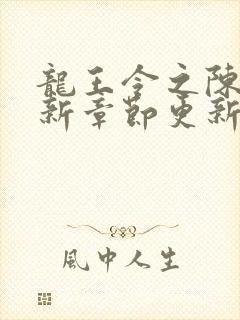 龍王令之陳
新章節更新
風中人生